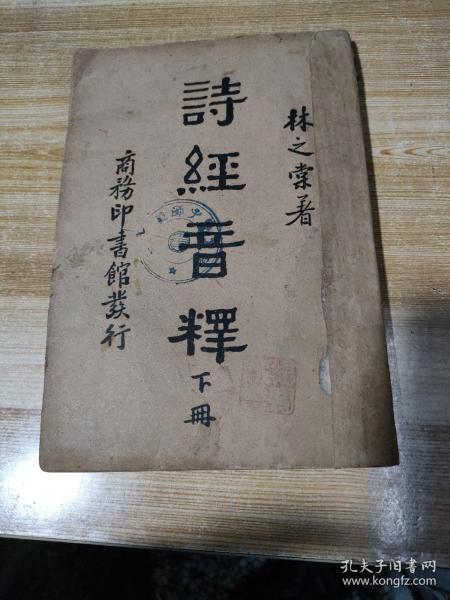 林之棠著
詩經音釋
下冊
商務印書館發行
孔夫子旧书网
www.kongfz.com